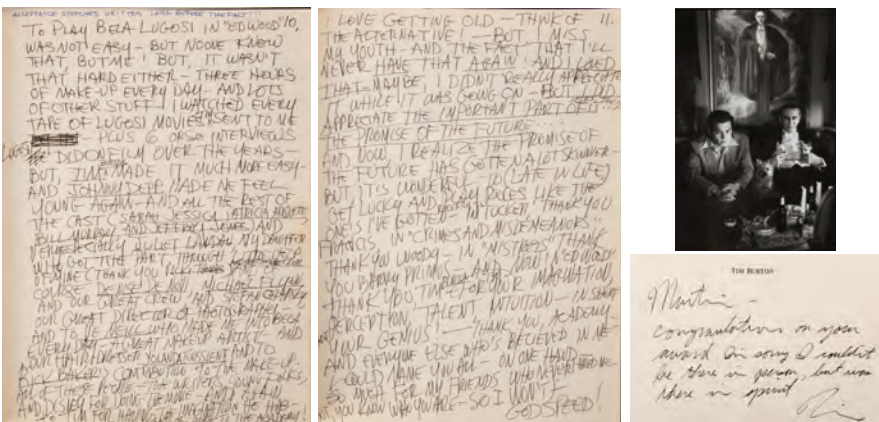 ACCEPTANCE SPEECHES WRITTEN LONG BEFORE THE FACT!!!
TO PLAY BELA LUGOSI IN "ED WOOD" 10.
WAS NOT EASY - BUT NO ONE KNEW
THAT, BUT ME! BUT, IT WASN'T
THAT HARD EITHER - THREE HOURS
OF MAKE-UP EVERY DAY - AND LOTS
OF OTHER STUFF - I WATCHED EVERY
TAPE OF LUGOSI MOVIES SENT TO ME
PLUS 6 OR SO INTERVIEWS
LUGOSI DID ON FILM OVER THE YEARS -
BUT, TIM MADE IT MUCH MORE EASY -
AND JOHNNY DEPP MADE ME FEEL
YOUNG AGAIN - AND ALL THE REST OF
THE CAST (SARAH JESSICA, PATRICIA ARQUETTE,
BILL MURRAY AND JEFFREY JONES) AND
ESPECIALLY JULIET LANDAU, MY DAUGHTER
WHO GOT THE PART, THROUGH
OF MINE (THANK YOU
COURSE, DENISE DENOVI, MICHAEL
AND OUR GREAT CREW, AND STEFAN CZAPSKY
OUR GREAT DIRECTOR OF PHOTOGRAPHY
AND TO VE NEILL WHO MADE ME INTO BELA
EVERY DAY - A GREAT MAKEUP ARTIST - AND
OUR HAIRDRESSER YOLANDA TOUSSIENT AND TO
RICK BAKER'S CONTRIBUTION TO THE MAKE-UP.
ALL OF THESE PEOPLE - THE WRITERS,
AND DISNEY FOR DOING THE MOVIE - AND AGAIN
TO TIM FOR HAVING THE IMAGINATION HE HAS -
TO THE ACADEMY!
I LOVE GETTING OLD - THINK OF 11.
THE ALTERNATIVE! - BUT I MISS
MY YOUTH - AND THE FACT THAT I'LL
NEVER HAVE THAT AGAIN! AND I LOVED
THAT - MAYBE, I DIDN'T REALLY APPRECIATE
IT WHILE IT WAS GOING ON - BUT I DID
APPRECIATE THE IMPORTANT PART OF IT
THE PROMISE OF THE FUTURE.
AND NOW, I REALIZE THE PROMISE OF
THE FUTURE HAS GOTTEN A LOT SKINNIER -
BUT IT IS WONDERFUL - TO (LATE IN LIFE)
GET LUCKY AND PLAY ROLES LIKE THE
ONE'S I'VE GOTTEN - IN "TUCKER", THANK YOU
FRANCIS, IN "CRIMES AND MISDEMEANORS"
THANK YOU WOODY - IN "MISTRESS" THANK
YOU BARRY PRIMUS, AND NOW IN "ED WOOD"
- THANK YOU, TIM - FOR YOUR IMAGINATION,
PERCEPTION, TALENT, INTUITION - IN SHORT
YOUR GENIUS! - THANK YOU, ACADEMY
AND EVERYONE ELSE WHO'S BELIEVED IN ME -
I COULD NAME YOU ALL - ON ONE HAND -
SO MUCH FOR MY FRIENDS WHO NEVER
YOU KNOW WHO YOU ARE - SO I WON'T -
GODSPEED!
TIM BURTON
Martin -
congratulations on your
award. I'm sorry I couldn't
be there in person, but was
there in spirit
Tim